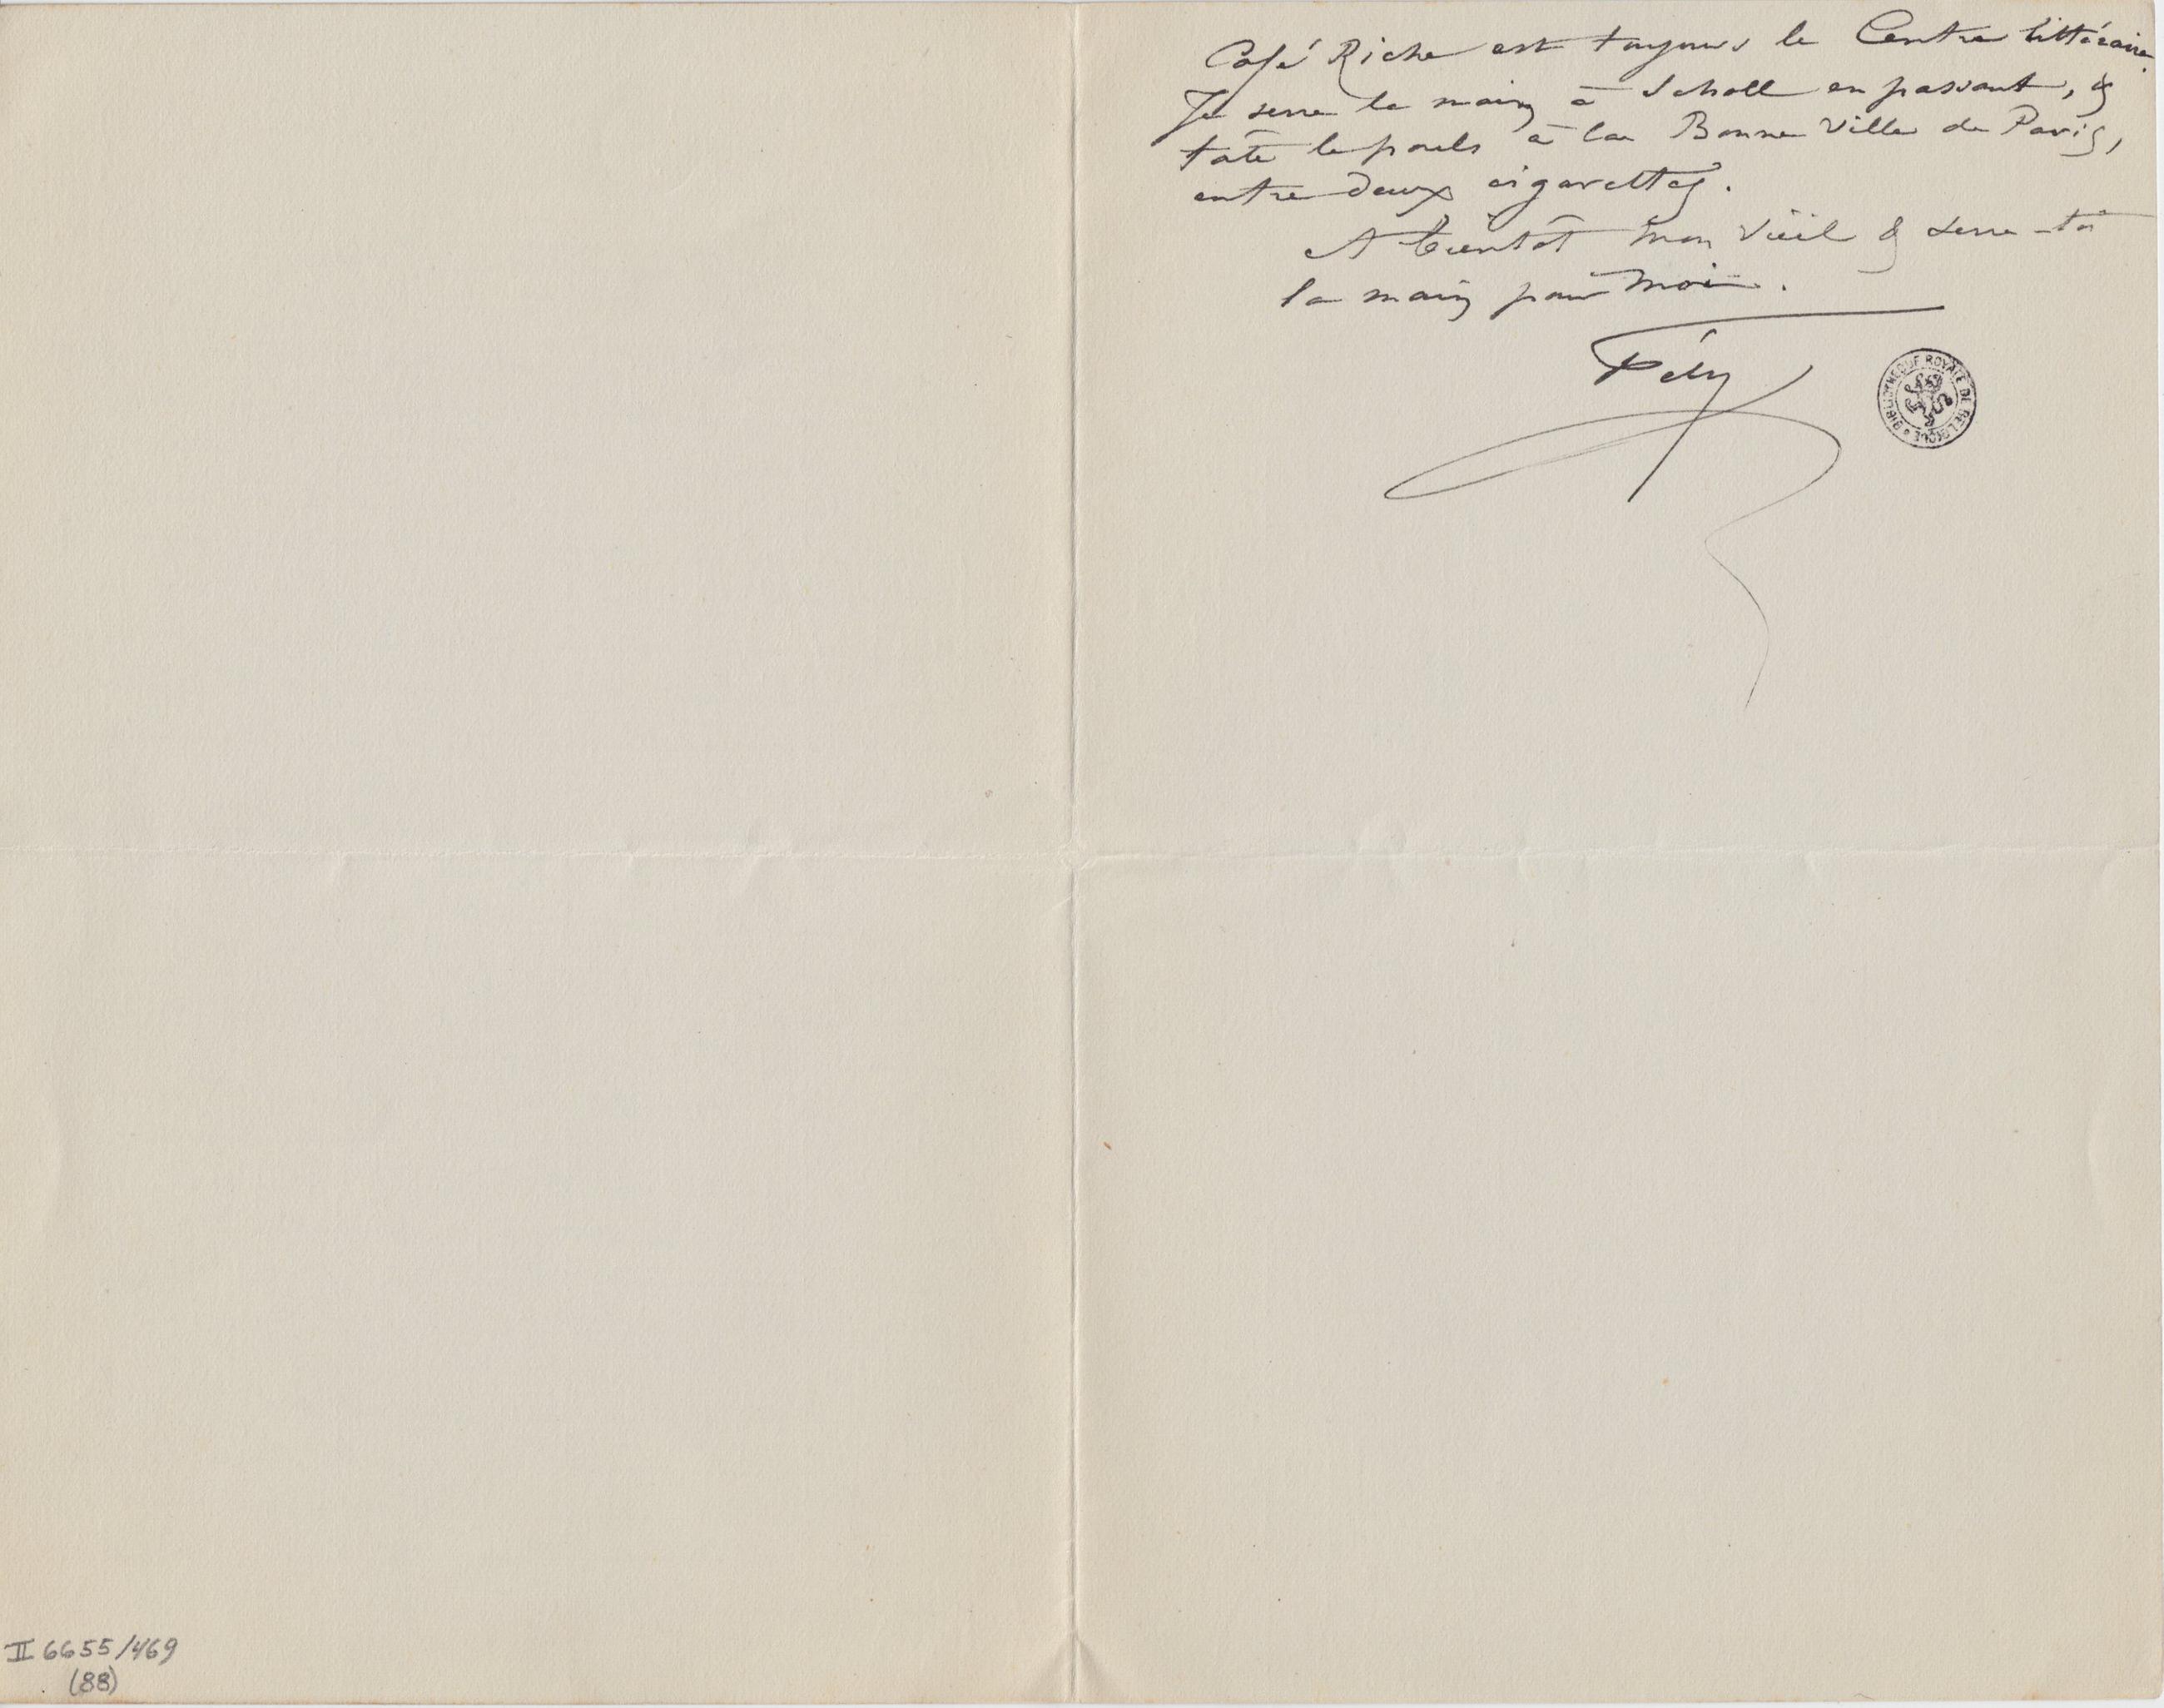 Café Riche est toujours le Centre littéraire.
Je serre la main à Scholl en passant, &
tâte le pouls à la Bonne Ville de Paris,
entre deux cigarettes.
A bientôt mon Vieil & serre-toi
la main pour moi.
Fély
BIBLIOTHEQUE ROYALE DE BELGIQUE
II 6655/469
(88)